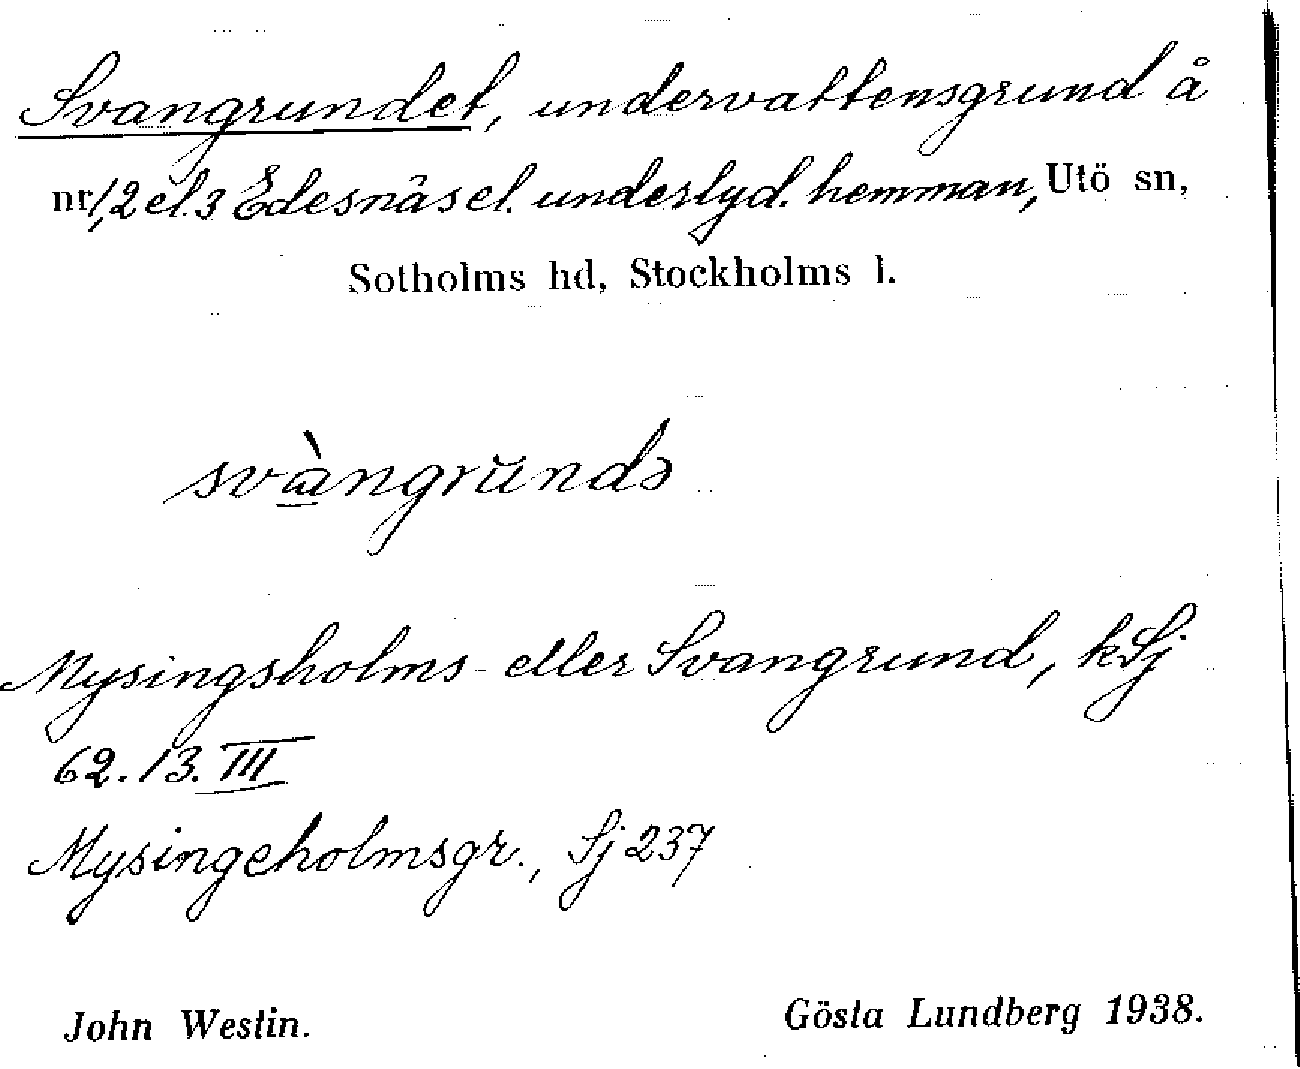 Svangrundet, undervattensgrund å
nr 1, 2 el. 3 Edesnäs el. underlyd. hemman, Utö sn,
Sotholms hd, Stockholms l.
svàngrŭndə
Mysingsholms- eller Svangrund, kSj
62.13.III
Mysingeholmsgr., Sj 237
John Westin. Gösta Lundberg 1938.